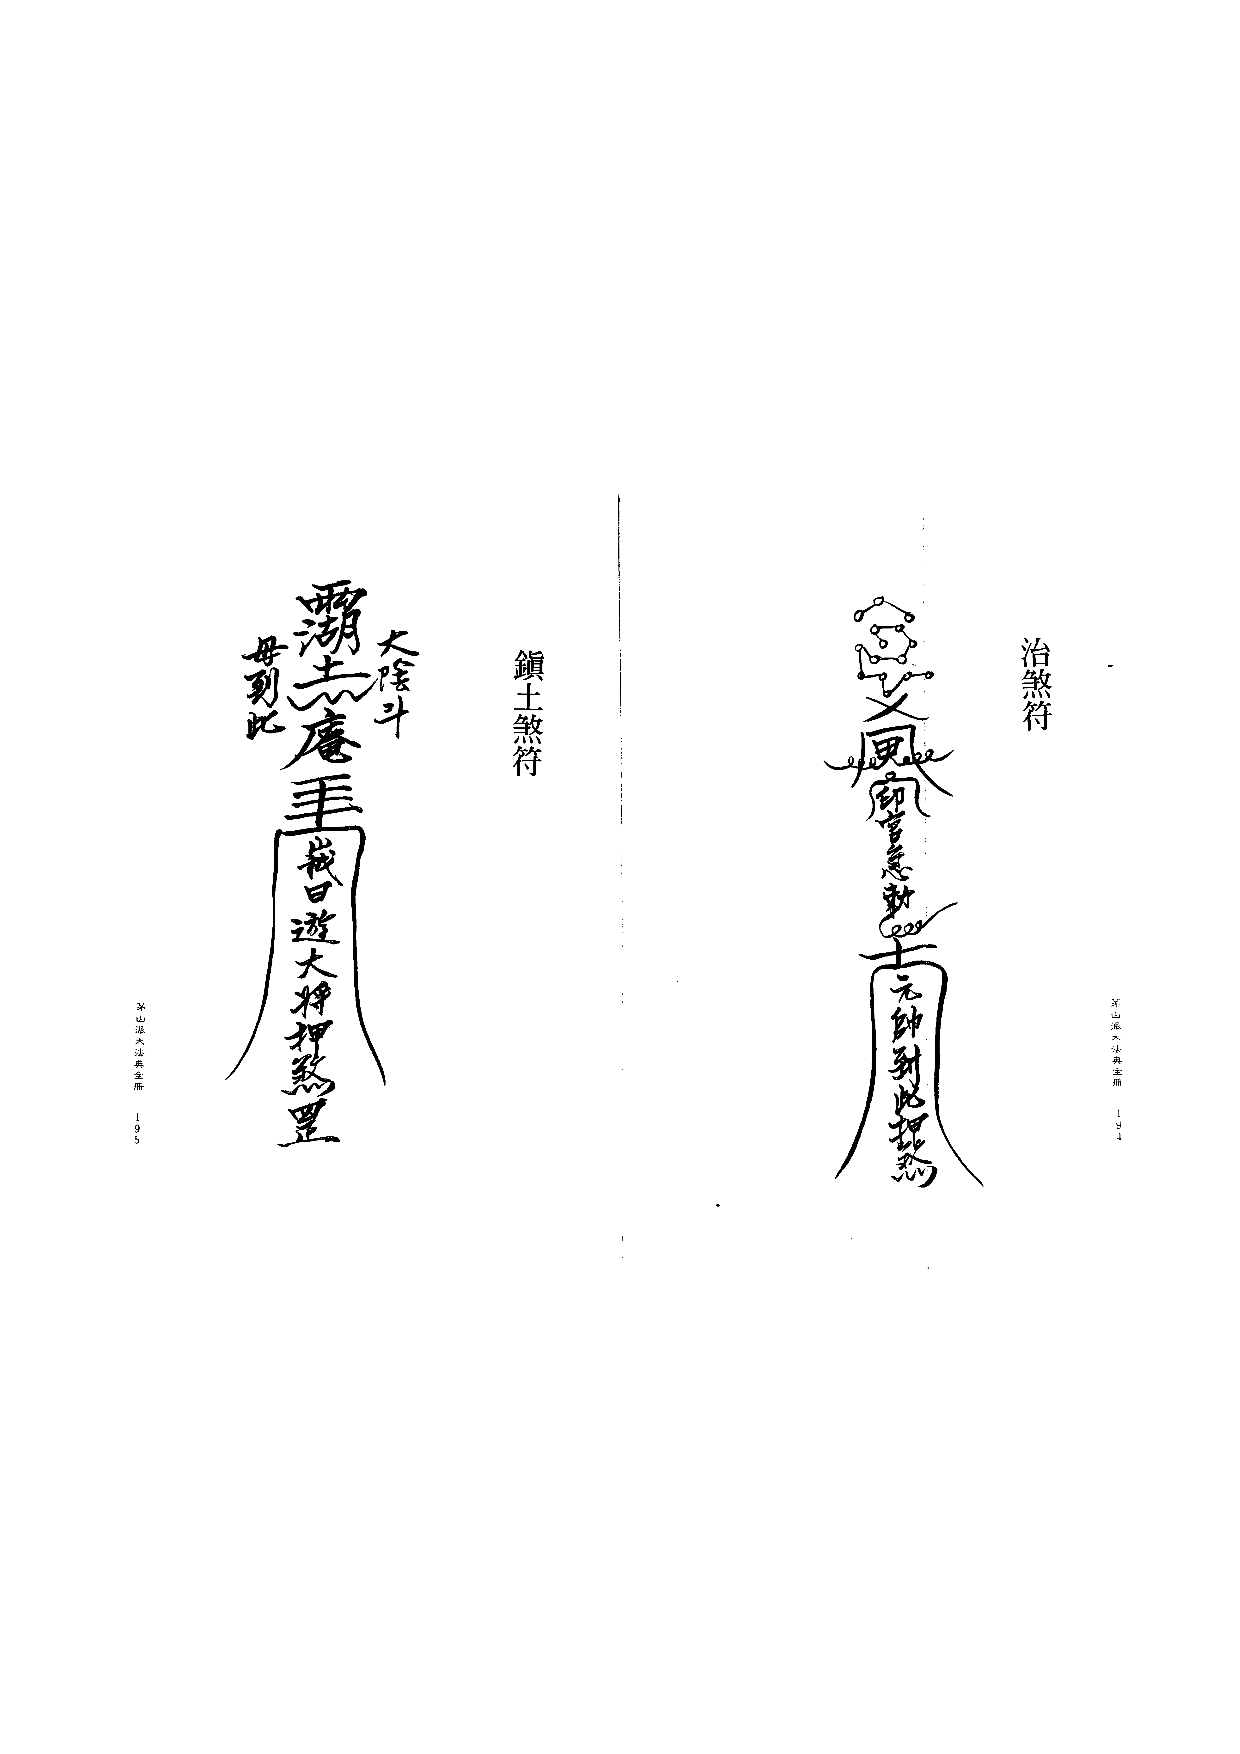 治煞符
印宮急勅
元帥到此押煞
茅山派大法典全冊 194
鎮土煞符
大陰斗
母到此
日遊大將押煞罡
茅山派大法典全冊 195